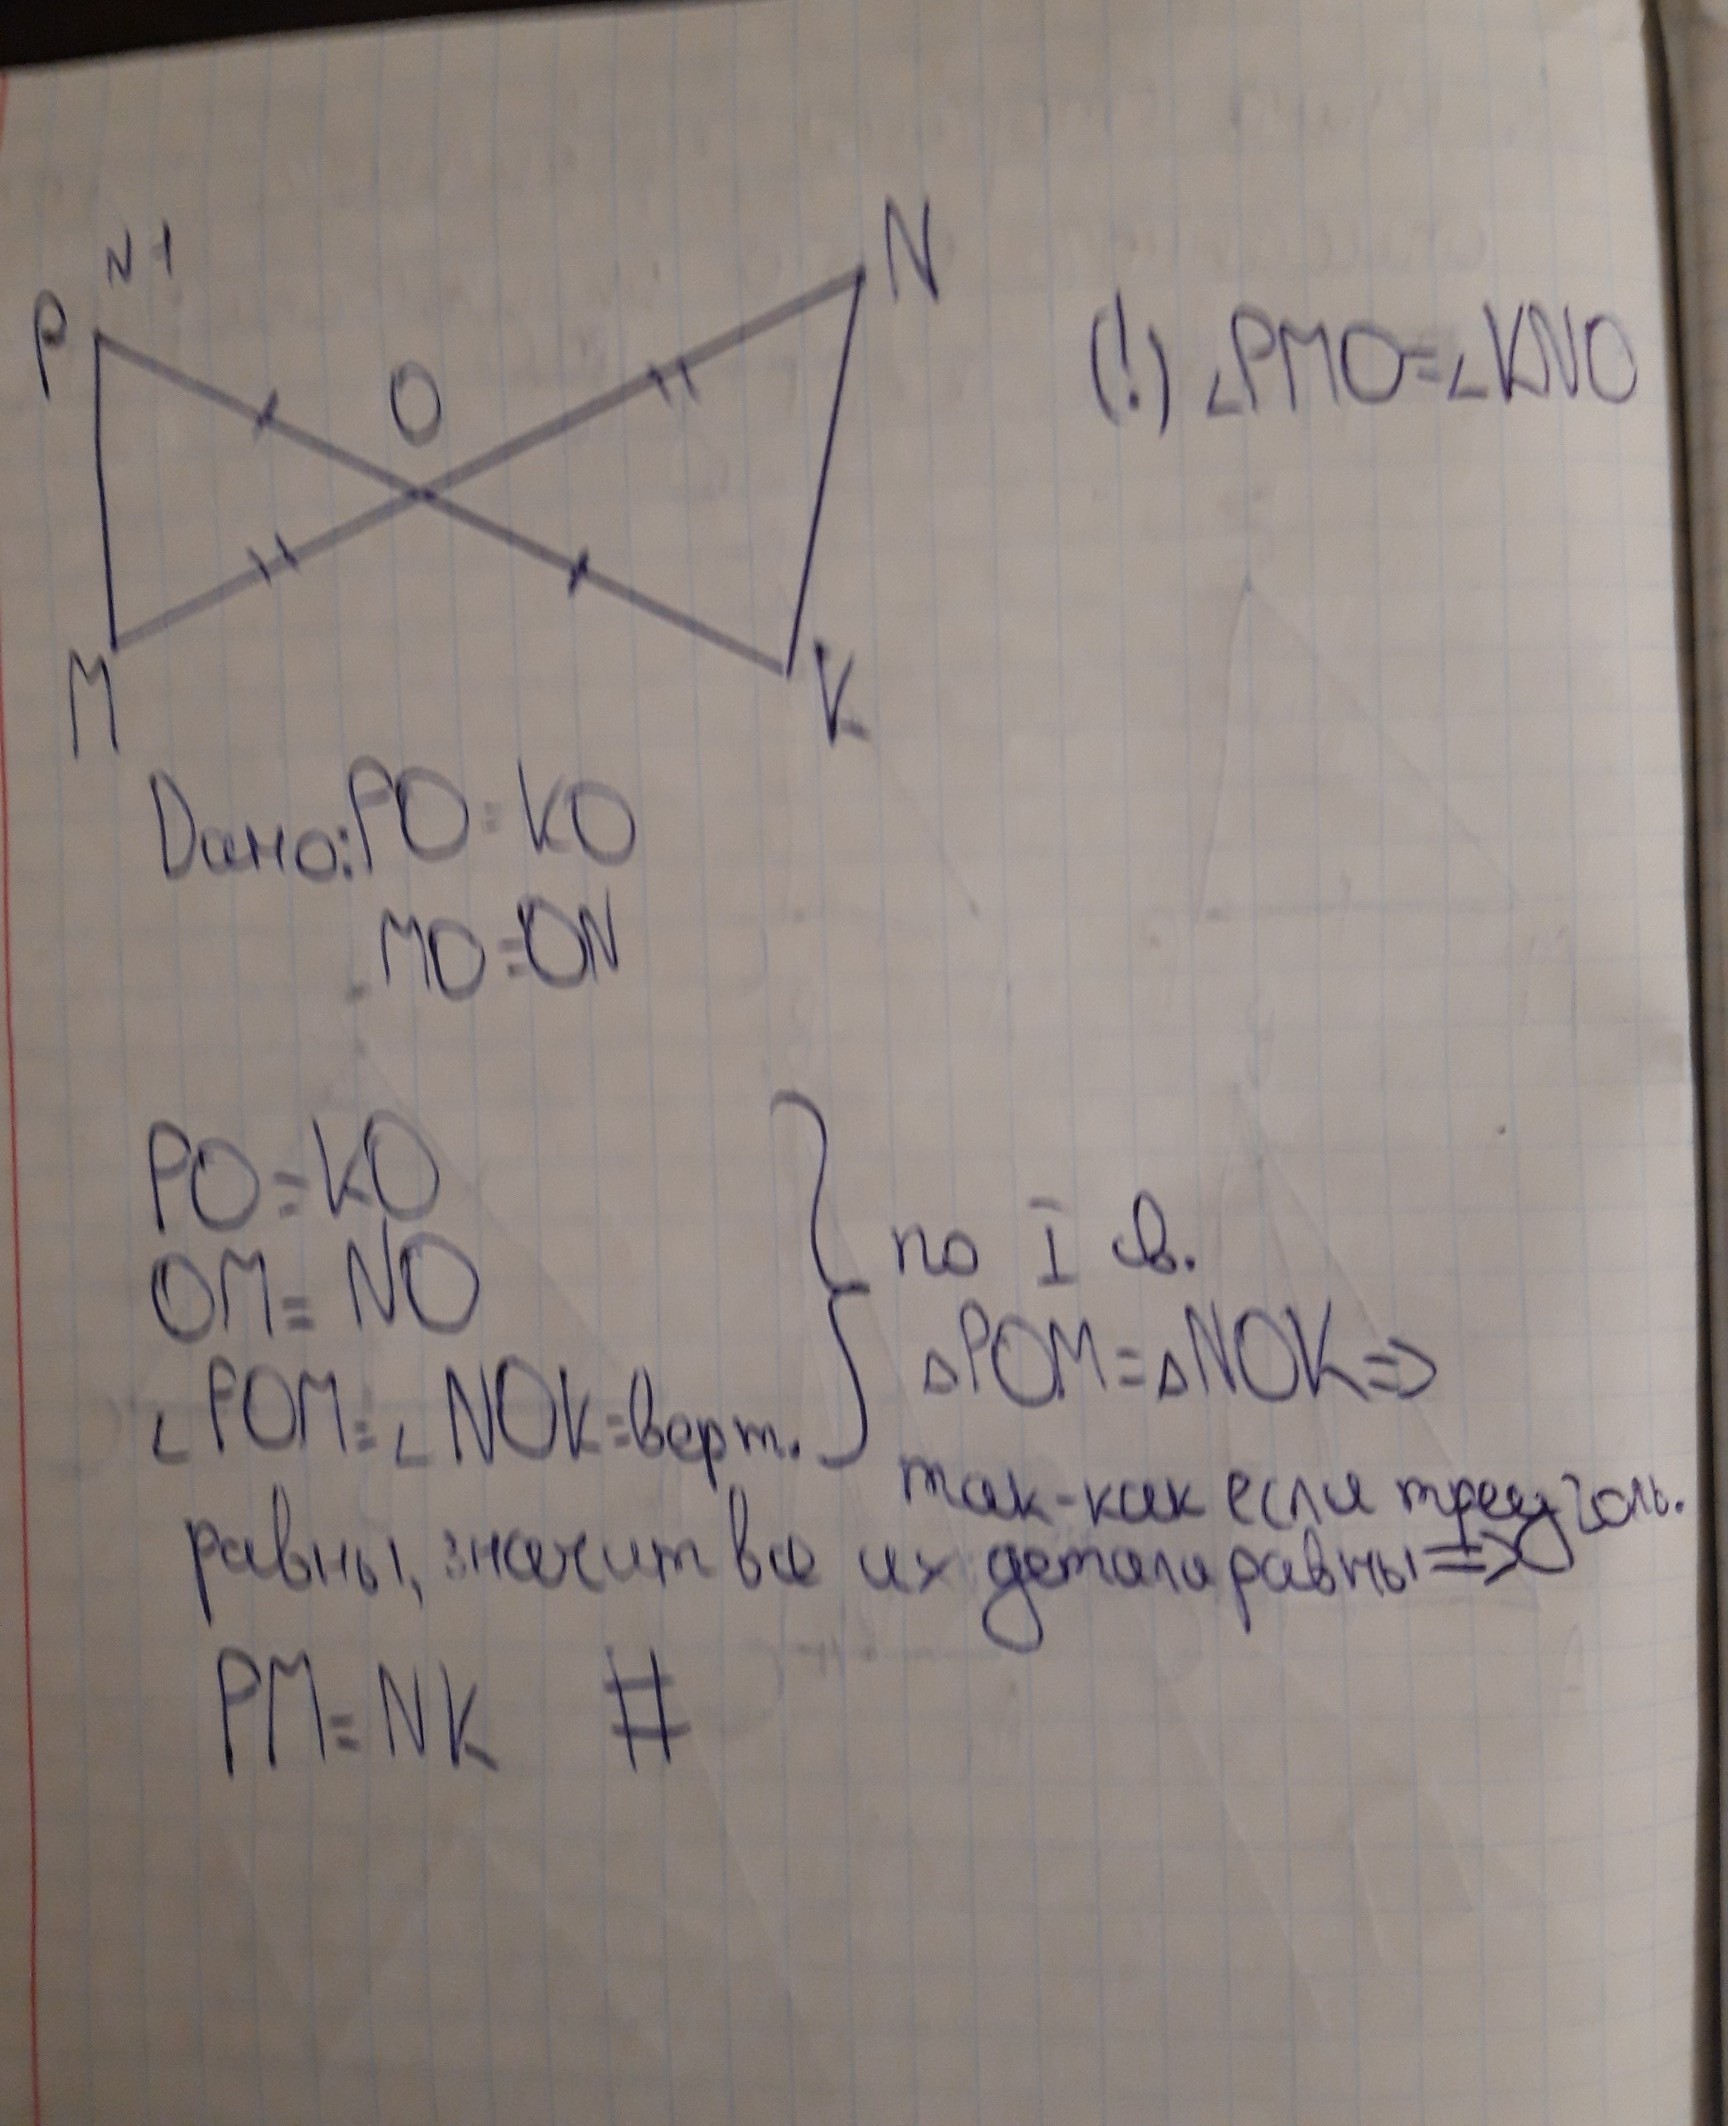 N1
P
O
N
M
K
(!) ∠PMO=∠KNO
Дано: PO=KO
MO=ON
PO=KO
OM=NO
∠POM=∠NOK=верт.
по I св.
△POM=△NOK=>
так-как если треуголь.
равны, значит все их детали равны=>
PM=NK #